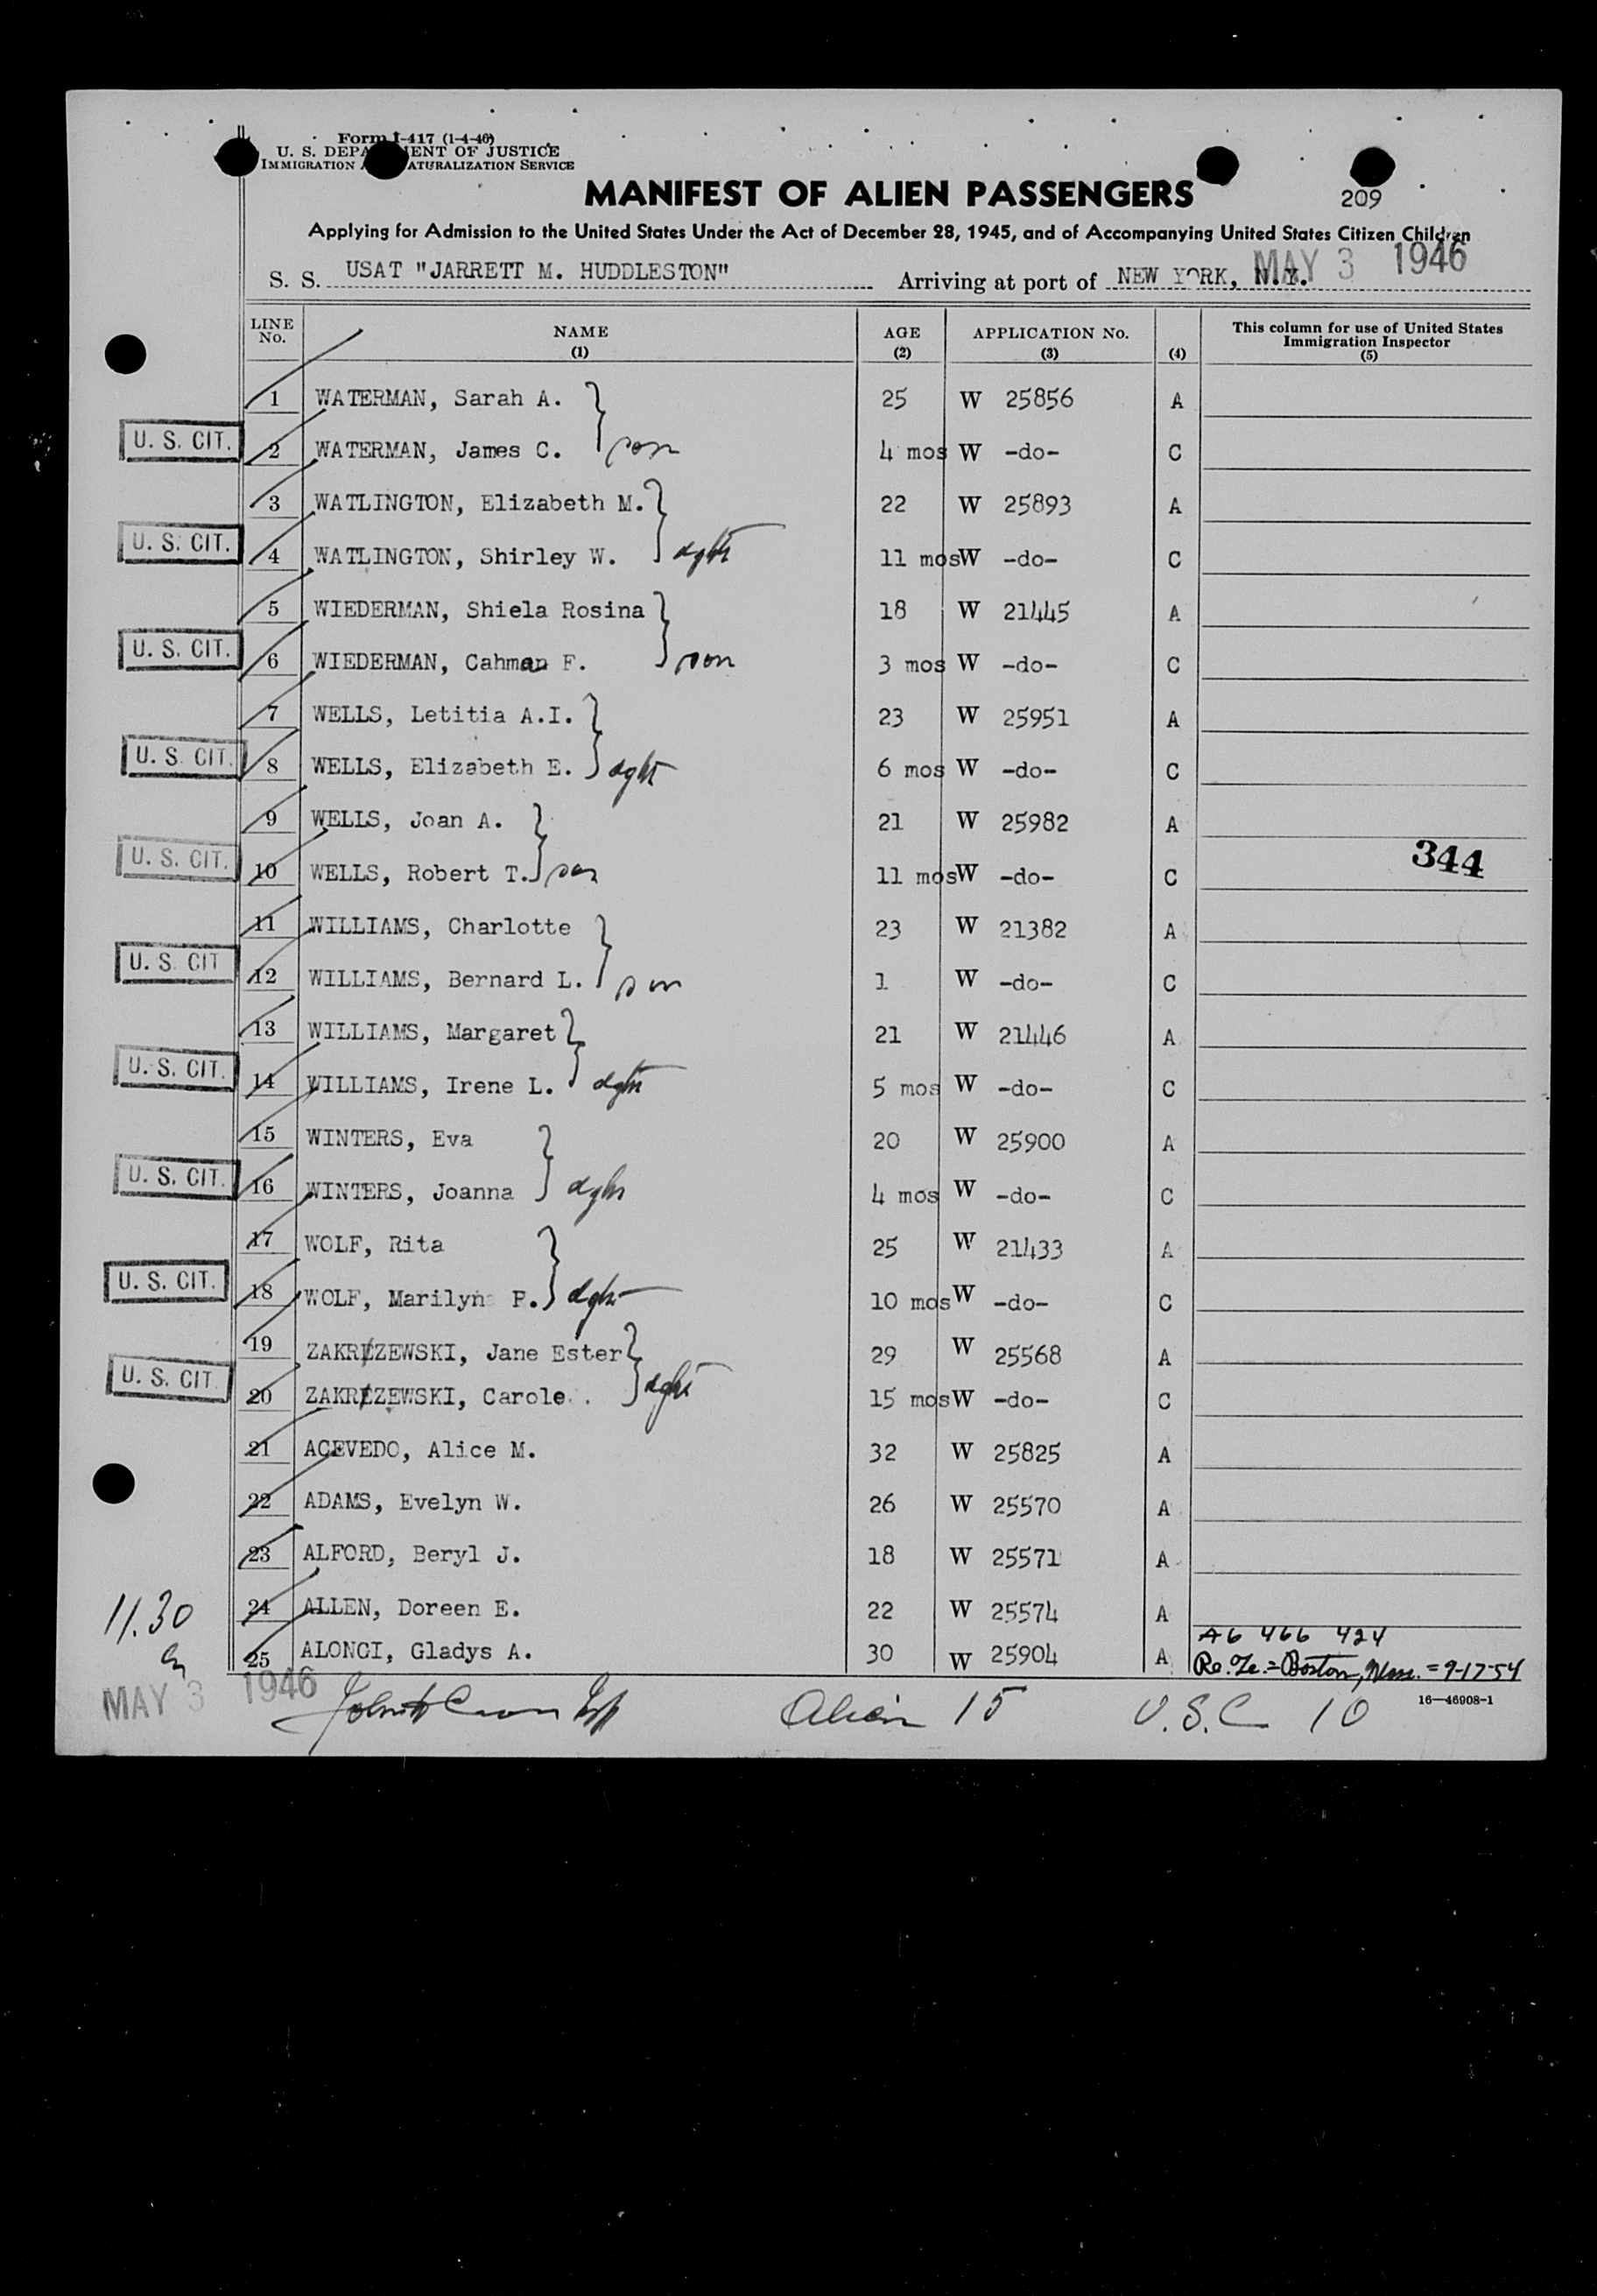 Form I-417 (1-4-46)
U. S. DEPA ENT OF JUSTICE
IMMIGRATION A ATURALIZATION SERVICE
MANIFEST OF ALIEN PASSENGERS
209
Applying for Admission to the United States Under the Act of December 28, 1945, and of Accompanying United States Citizen Children
S. S. USAT "JARRETT M. HUDDLESTON" Arriving at port of NEW YORK, N.Y. MAY 3 1946
LINE No. NAME (1) AGE (2) APPLICATION No. (3) (4) This column for use of United States Immigration Inspector (5)
1 WATERMAN, Sarah A. 25 W 25856 A
U. S. CIT. 2 WATERMAN, James C. son 4 mos W -do- C
3 WATLINGTON, Elizabeth M. 22 W 25893 A
U. S. CIT. 4 WATLINGTON, Shirley W. dght 11 mos W -do- C
5 WIEDERMAN, Shiela Rosina 18 W 21445 A
U. S. CIT. 6 WIEDERMAN, Cahman F. son 3 mos W -do- C
7 WELLS, Letitia A.I. 23 W 25951 A
U. S. CIT. 8 WELLS, Elizabeth E. dght 6 mos W -do- C
9 WELLS, Joan A. 21 W 25982 A
344
U. S. CIT. 10 WELLS, Robert T. son 11 mos W -do- C
11 WILLIAMS, Charlotte 23 W 21382 A
U. S. CIT 12 WILLIAMS, Bernard L. son 1 W -do- C
13 WILLIAMS, Margaret 21 W 21446 A
U. S. CIT. 14 WILLIAMS, Irene L. dght 5 mos W -do- C
15 WINTERS, Eva 20 W 25900 A
U. S. CIT. 16 WINTERS, Joanna dght 4 mos W -do- C
17 WOLF, Rita 25 W 21433 A
U. S. CIT. 18 WOLF, Marilyn P. dght 10 mos W -do- C
19 ZAKRZEWSKI, Jane Ester 29 W 25568 A
U. S. CIT. 20 ZAKRZEWSKI, Carole dght 15 mos W -do- C
21 ACEVEDO, Alice M. 32 W 25825 A
22 ADAMS, Evelyn W. 26 W 25570 A
23 ALFORD, Beryl J. 18 W 25571 A
11.30 24 ALLEN, Doreen E. 22 W 25574 A
A6 466 424
25 ALONGI, Gladys A. 30 W 25904 A Boston, Mass. = 9-17-54
MAY 3 1946 Alien 15 U.S.C 10 16—46908-1